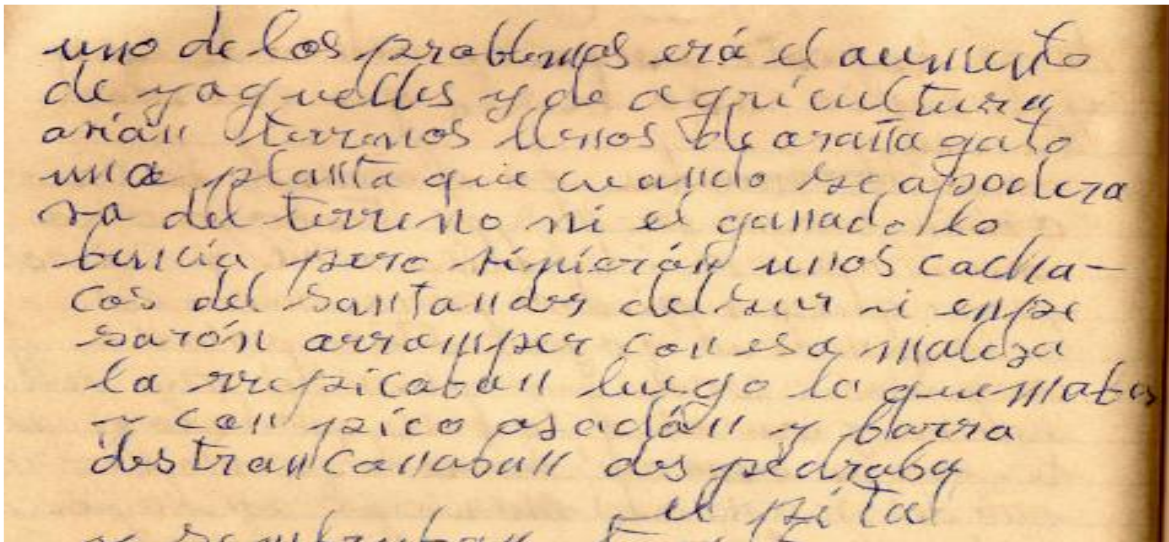 uno de los problemas erá el aumento
de yaquelles y de agricultura
arián terrenos llenos de araña gato
una planta que cuando se apodera
va del terreno ni el ganado lo
bencia, pero binierón unos cacha-
cos del Santander del sur i enpe
sarón arromper con esa malesa
la rrepicaban luego la quemaban
y con pico asadán y barra
destrancanaban des pedraba
el pital
y sembraban